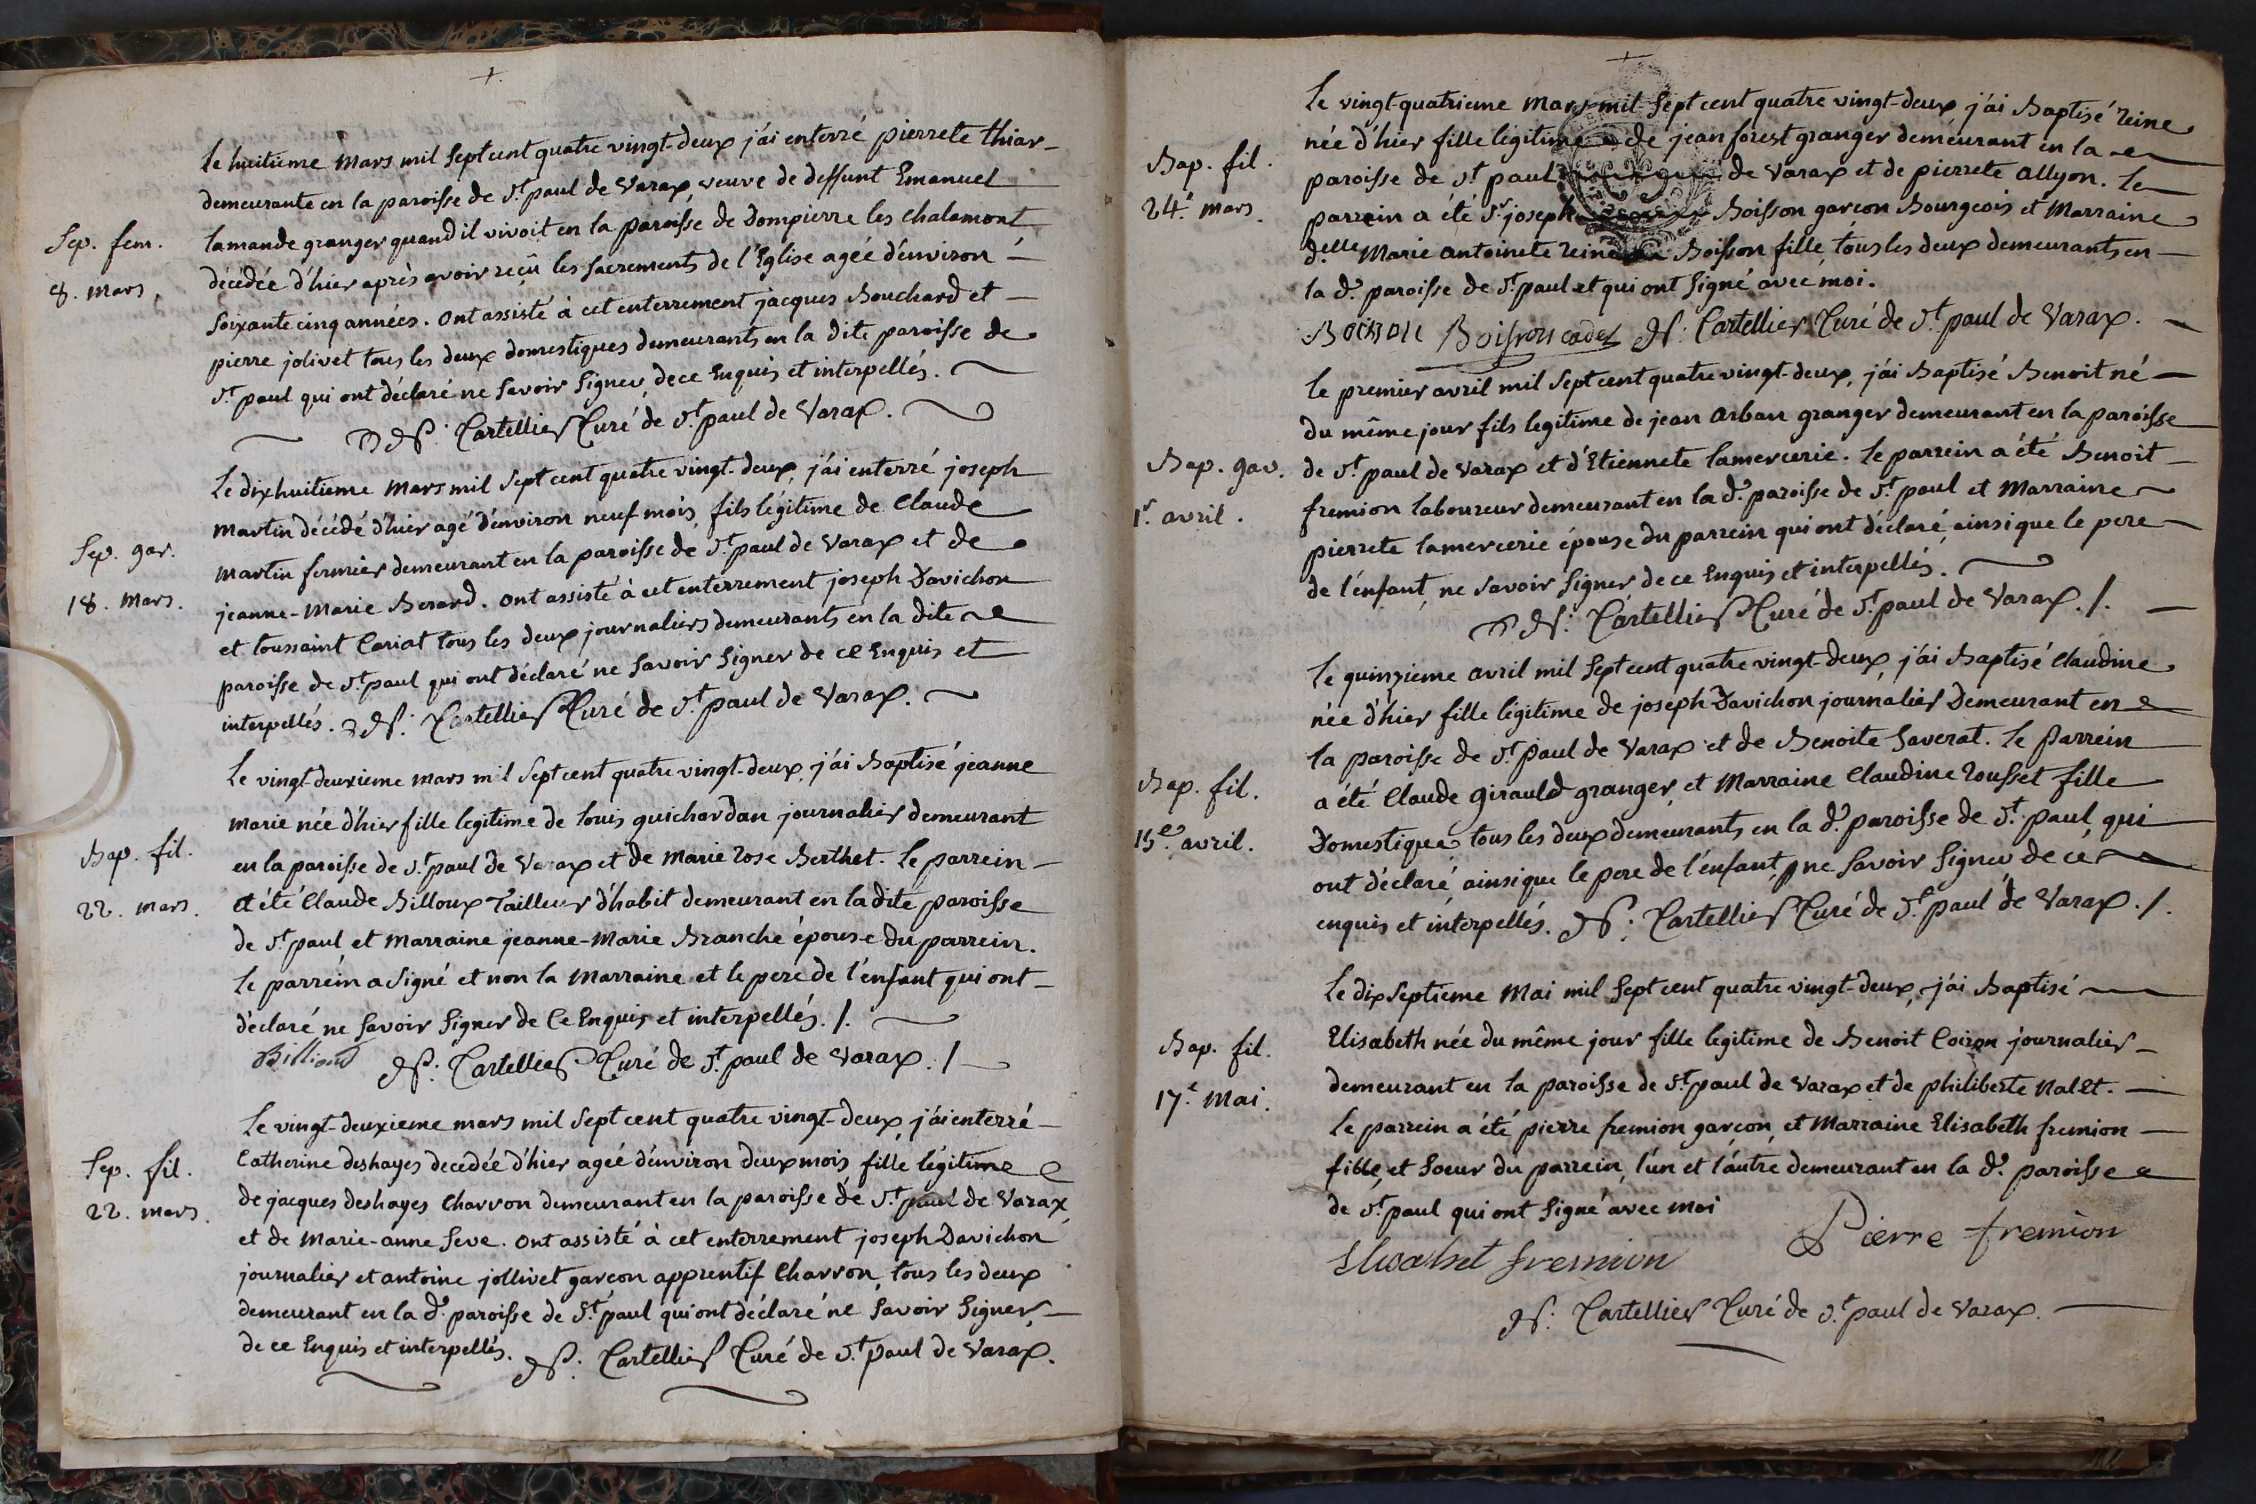 +.
Sep. fem.
8. mars.
le huitieme Mars mil sept cent quatre vingt-deux j'ai enterré pierrete thiar
demeurante en la paroisse de St. paul de Varax, veuve de deffunt Emanuel
lamande granger quand il vivoit en la paroisse de dompierre les chalamont
décédée d'hier après avoir reçû les sacrements de l'Eglise agée d'environ
soixante cinq années. ont assisté à cet enterrement jacques Bouchard et
pierre jolivet tous les deux domestiques demeurants en la dite paroisse de
St. paul qui ont déclaré ne savoir signer de ce Enquis et interpellés.
Cartellier Curé de St. paul de Varax.
Sep. gar.
18. mars.
Le dixhuitieme Mars mil sept cent quatre vingt-deux, j'ai enterré joseph
Martin décédé d'hier agé d'environ neuf mois, fils légitime de Claude
Martin fermier demeurant en la paroisse de St. paul de Varax et de
jeanne-Marie Berard. ont assisté à cet enterrement joseph Davichon
et toussaint Cariat tous les deux journaliers demeurants en la dite
paroisse de St. paul qui ont déclaré ne savoir signer de ce Enquis et
interpellés. Cartellier Curé de St. paul de Varax.
Bap. fil.
22. mars.
Le vingt-deuxieme mars mil sept cent quatre vingt-deux, j'ai Baptisé jeanne
marie née d'hier fille legitime de louis guichardan journalier demeurant
en la paroisse de St. paul de Varax et de Marie rose Berthet. le parrein
a été Claude Billoux Tailleur d'habit demeurant en la dite paroisse
de St. paul et Marraine jeanne-Marie Branche épouse du parrein.
le parrein a signé et non la Marraine et le pere de l'enfant qui ont
déclaré ne savoir signer de Ce Enquis et interpellés. /.
Cartellier Curé de St. paul de Varax. /
Sep. fil.
22. mars.
Le vingt-deuxieme mars mil sept cent quatre vingt-deux, j'ai enterré
Catherine deshayes decedée d'hier ageé d'environ deux mois fille légitime
de jacques deshayes Charron demeurant en la paroisse de St. paul de Varax
et de Marie-anne seve. ont assisté à cet enterrement joseph Davichon
journalier et antoine jollivet garcon apprentif Charron, tous les deux
demeurant en la de. paroisse de St. paul qui ont déclaré ne savoir signer
de ce Enquis et interpellés. Cartellier Curé de St. paul de Varax.
+
Bap. fil.
24e. mars.
le vingt-quatrieme Mars mil sept cent quatre vingt-deux j'ai Baptisé reine
née d'hier fille légitime de jean forest granger demeurant en la
paroisse de St. paul de Varax et de pierrete allyon. le
parrein a été Sr. joseph Boisson garcon Bourgeois et Marraine
delle. Marie antoinete reine Boisson fille, tous les deux demeurants en
la de. paroisse de St. paul et qui ont signé avec moi.
Boisson Boisson cadet Cartellier Curé de St. paul de Varax.
Bap. gar.
1r. avril.
le premier avril mil sept cent quatre vingt-deux, j'ai Baptisé Benoit né
du même jour fils legitime de jean arban granger demeurant en la paroisse
de St. paul de Varax et d'Etiennete lamercerie. le parrein a été Benoit
fremion laboureur demeurant en la de. paroisse de St. paul et Marraine
pierrete lamercerie épouse du parrein qui ont déclaré, ainsi que le pere
de l'enfant, ne savoir signer de ce Enquis et interpellés.
Cartellier Curé de St. paul de Varax. /.
Bap. fil.
15e. avril.
Le quinzieme avril mil sept cent quatre vingt-deux, j'ai Baptisé Claudine
née d'hier fille légitime de joseph Davichon journalier Demeurant en
la paroisse de St. paul de Varax et de Benoite Saverat. le Parrein
a été Claude Girauld granger, et Marraine Claudine rousset fille
Domestique tous les deux demeurants en la de. paroisse de St. paul, qui
ont déclaré ainsi que le pere de l'enfant, ne savoir signer de ce
enquis et interpellés. Cartellier Curé de St. paul de Varax. /.
Bap. fil.
17e. Mai.
Le dix septieme Mai mil sept cent quatre vingt-deux, j'ai Baptisé
Elisabeth née du même jour fille legitime de Benoit Coiron journalier
demeurant en la paroisse de St. paul de Varax et de philiberte Nalet.
le parrein a été pierre fremion garcon, et Marraine Elisabeth fremion
fille, et soeur du parrein, l'un et l'autre demeurant en la de. paroisse
de St. paul qui ont signé avec moi
Pierre fremion
Elisabet fremion
Cartellier Curé de St. paul de Varax.